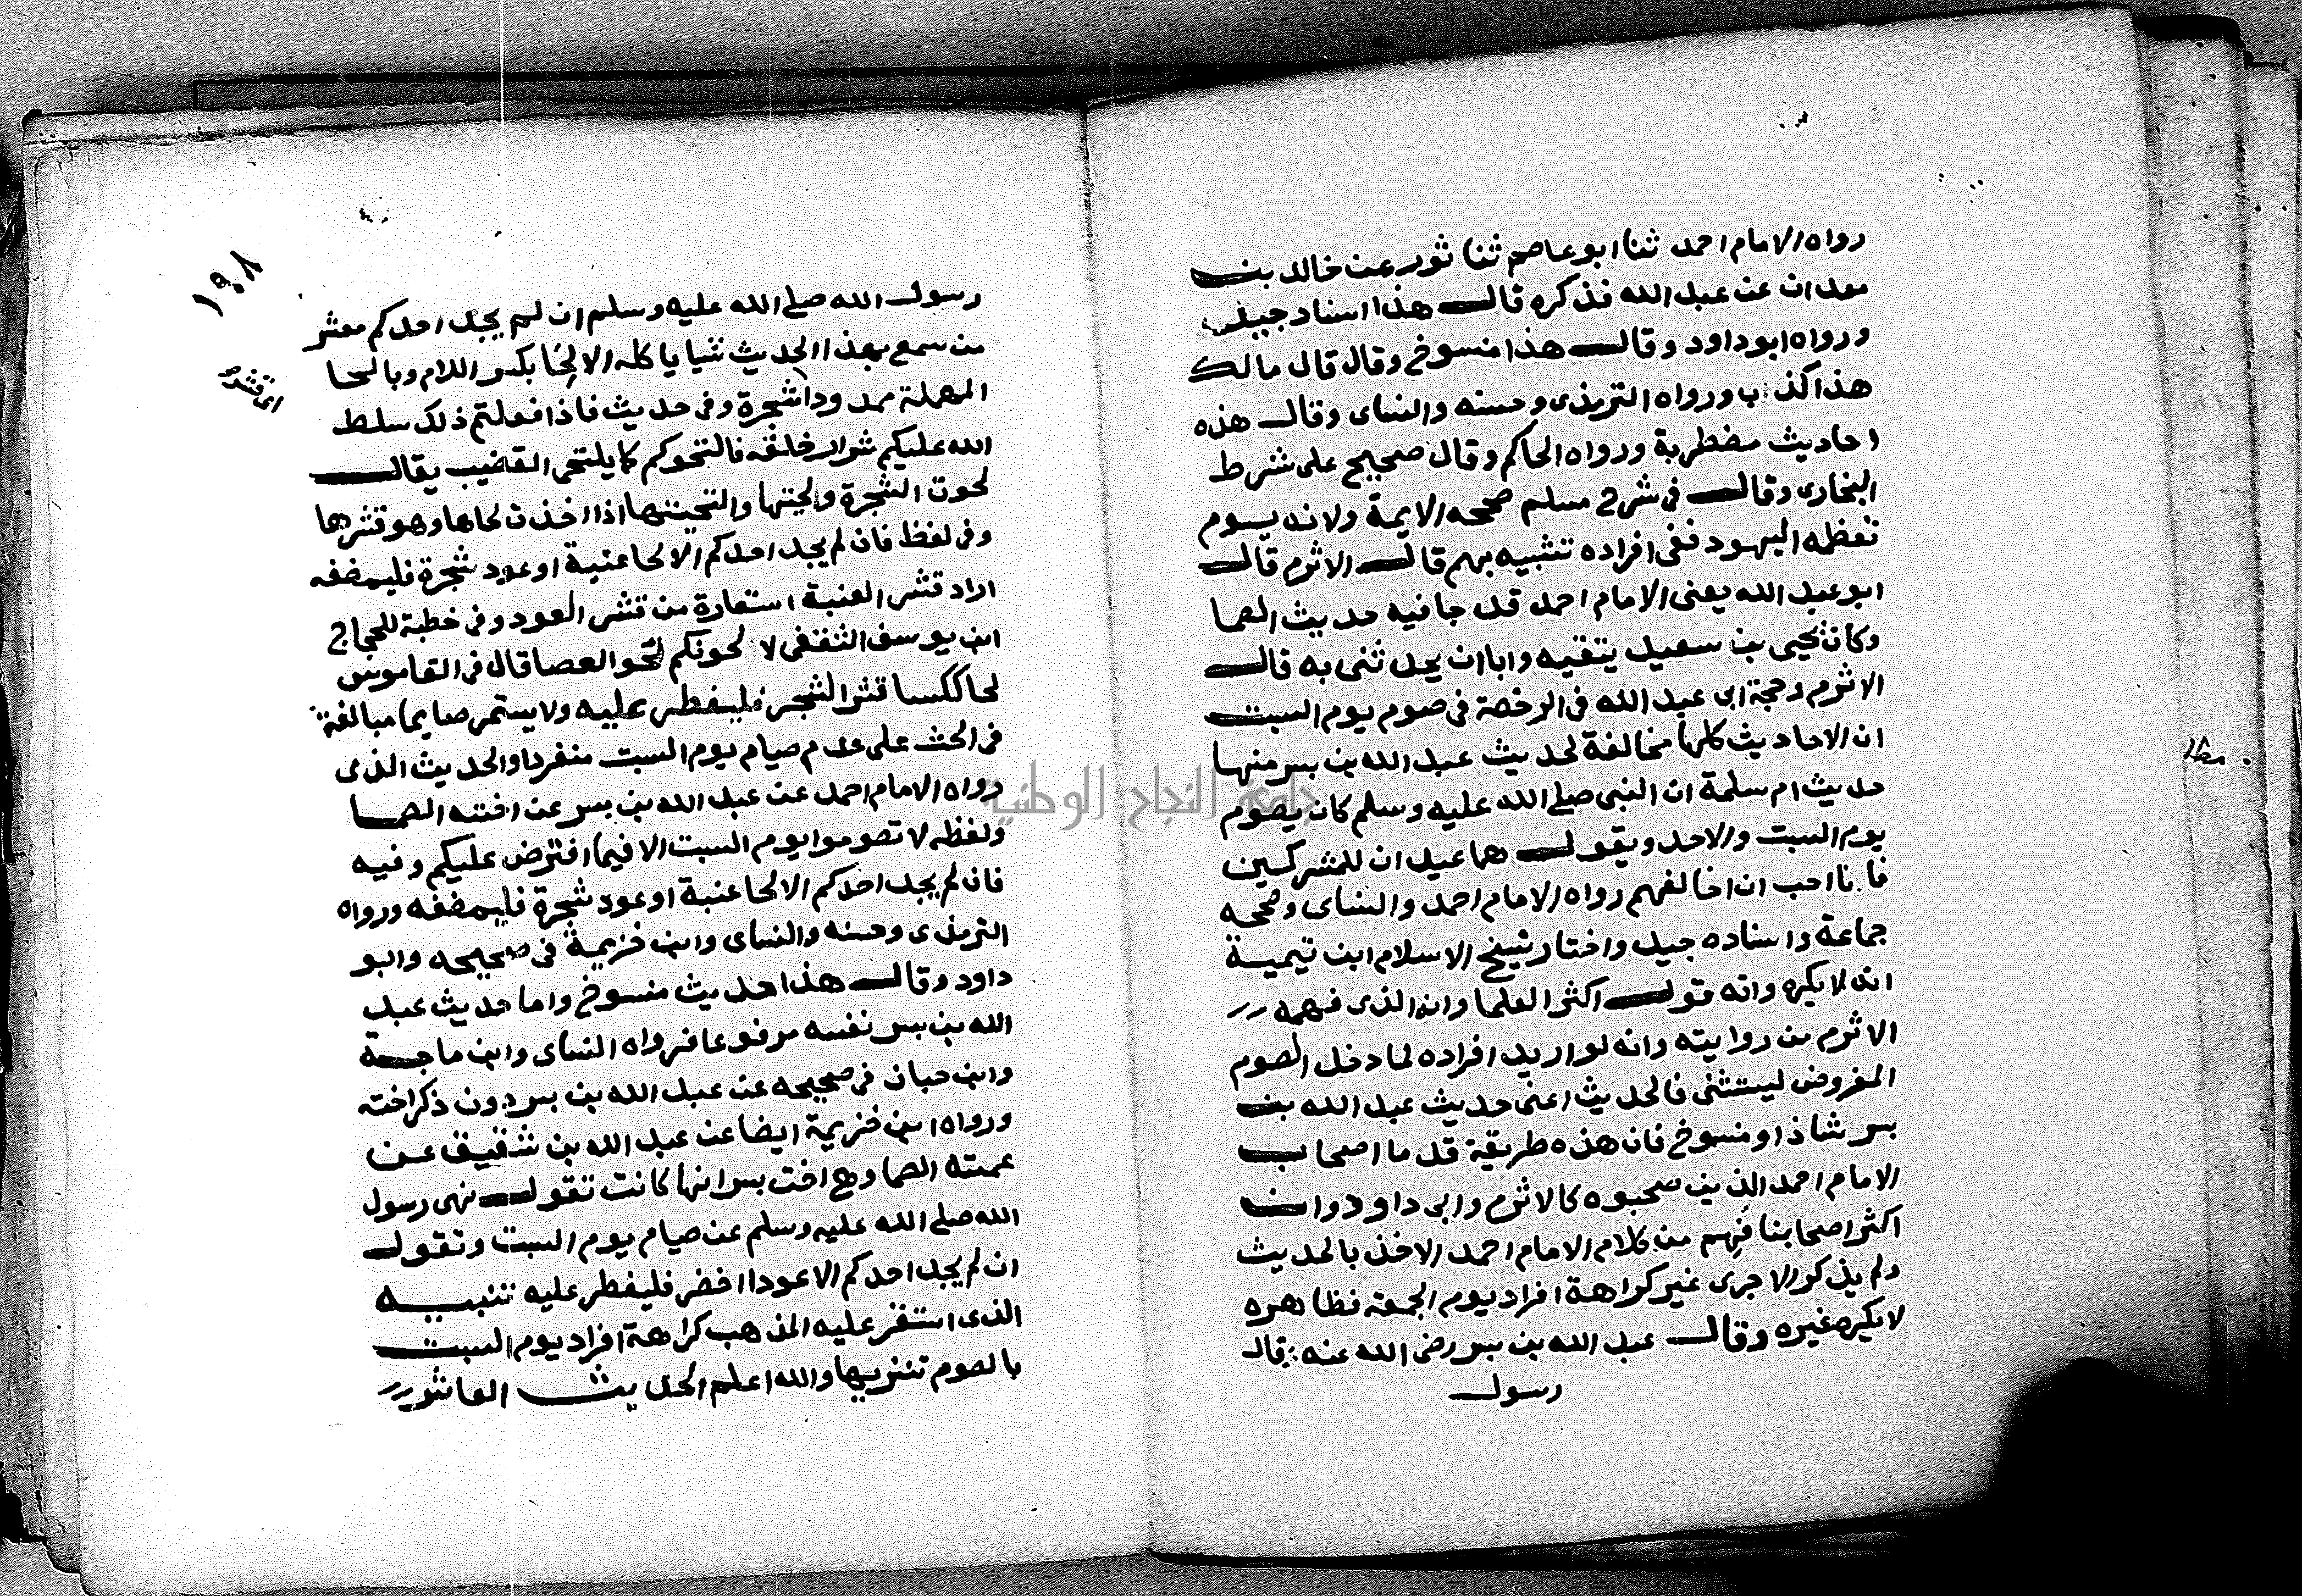 رواه الامام احمد ثنا ابو عاصم ثنا ثور عن خالد بن
معدان عن عبد الله فذكره قال هذا اسناد جيد
ورواه ابو داود وقال هذا منسوخ وقال قال مالك
هذا كذب ورواه الترمذي وحسنه والنساى وقال هذه
احاديث مضطربة ورواه الحاكم وقال صحيح على شرط
البخارى وقال فى شرح مسلم صححه الايمة ولانه يوم
تعظمه اليهود ففى افراده تشبيه بهم قال الاثرم قال
ابو عبد الله يعنى الامام احمد قد جا فيه حديث الصما
وكان يحيى بن سعيد يتقيه وابا ان يحدثنى به قال
الاثرم وحجة ابى عبد الله فى الرخصة فى صوم يوم السبت
ان الاحاديث كلها مخالفة لحديث عبد الله بن بسر منها
حديث ام سلمة ان النبى صلى الله عليه وسلم كان يصوم
يوم السبت والاحد ويقول هما عيدان للمشركين
فانا احب ان اخالفهم رواه الامام احمد والنساى وصححه
جماعة واسناده جيد واختار شيخ الاسلام ابن تيمية
انه لا يكره وانه قول اكثر العلما وان الذى فهمه
الاثرم من روايته وانه لو اريد افراده لما دخل الصوم
المفروض ليستثنى فالحديث اعنى حديث عبد الله بن
بسر شاذ او منسوخ فان هذه طريقة قدما اصحاب
الامام احمد الذين صحبوه كالاثرم وابى داود وان
اكثر اصحابنا فهم من كلام الامام احمد الاخذ بالحديث
ولم يذكر الاجرى غير كراهة افراد يوم الجمعة فظاهره
لا يكره غيره وقال عبد الله بن بسر رضى الله عنه قال
رسول
١٠٨
رسول الله صلى الله عليه وسلم ان لم يجد احدكم معشر
من سمع بهذا الحديث شيا ياكله الا لِحَا بكسر اللام وبالحا
المهملة ممدودا شجرة وفى حديث فاذا فعلتم ذلك سلط
الله عليكم شرار خلقه فالتحوكم كما يلتحى القضيب يقال
اى قشر
لحوت الشجرة ولحيتها والتحيتها اذا اخذت لحاها وهو قشرها
وفى لفظ فان لم يجد احدكم الا لحا عنبة او عود شجرة فليمضغه
اراد قشر العنبة استعارة من قشر العود وفى خطبة للحجاج
ابن يوسف الثقفى لا لحونكم لحو العصا قال فى القاموس
لحا ككسا قشر الشجر فليفطر عليه ولا يستمر صايما مبالغة
فى الحث على عدم صيام يوم السبت منفردا والحديث الذى
رواه الامام احمد عن عبد الله بن بسر عن اخته الصما
ولفظه لا تصوموا يوم السبت الا فيما افترض عليكم وفيه
فان لم يجد احدكم الا لحا عنبة او عود شجرة فليمضغه ورواه
الترمذى وحسنه والنساى وابن خزيمة فى صحيحه وابو
داود وقال هذا حديث منسوخ واما حديث عبد
الله بن بسر نفسه مرفوعا فرواه النساى وابن ماجة
وابن حبان فى صحيحه عن عبد الله بن بسر دون ذكر اخته
ورواه ابن خزيمة ايضا عن عبد الله بن شقيق عن
عمته الصما وهى اخت بسر انها كانت تقول نهى رسول
الله صلى الله عليه وسلم عن صيام يوم السبت وتقول
ان لم يجد احدكم الا عودا اخضر فليفطر عليه تنبيه
الذى استقر عليه المذهب كراهة افراد يوم السبت
بالصوم تنزيها والله اعلم الحديث العاشر
جامعة النجاح الوطنية